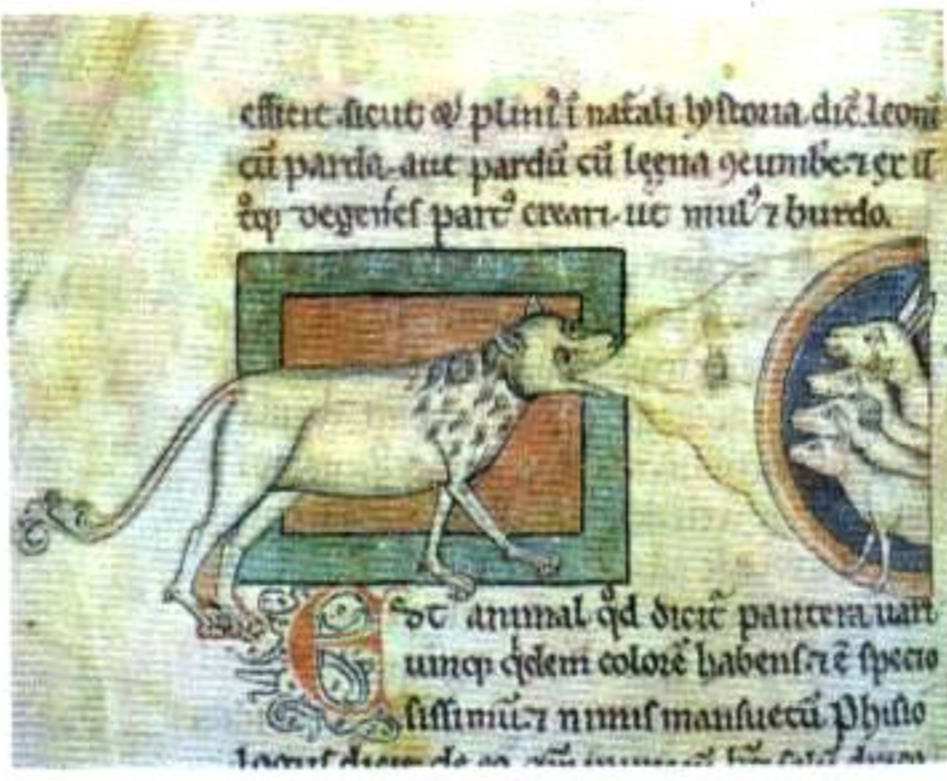 efficit. sicut & plini⁹ ī nat̄ali hystoria. dic̄. leonē
cū parda. aut pardū cū leena ꝯcumbe.⁊ ex
degen̄es part⁹ creari. ut mul⁹ ⁊ burdo.
Est animal qd̄ dicit̄ pantera uari
umqȝ qdem colorē habens.⁊ ē specio
sissimū.⁊ nimis mansuetū. Phisio
logus dicit de eo